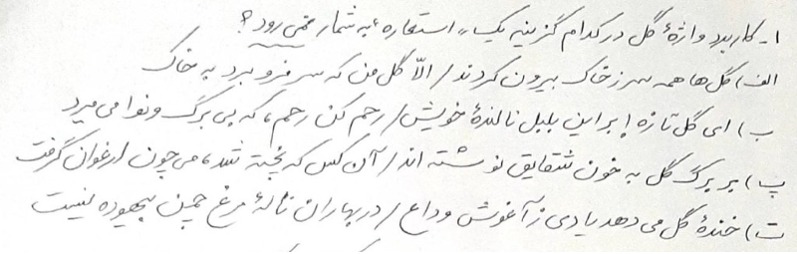 ۱- کاربرد واژهٔ گل در کدام گزینه یک «استعاره» به شمار نمی رود؟
الف) گل‌ها همه سر ز خاک بیرون کردند / الّا گل من که سر فرو برد به خاک
ب) ای گل تازه! بر این بلبل نالندهٔ خویش / رحم کن رحم، که بی برگ و نوا می میرد
پ) بر برگ گل به خون شقایق نوشته اند / آن کس که پخته شد، می چون ارغوان گرفت
ت) خندهٔ گل می دهد یادی ز آغوش وداع / در بهاران نالهٔ مرغ چمن بیهوده نیست